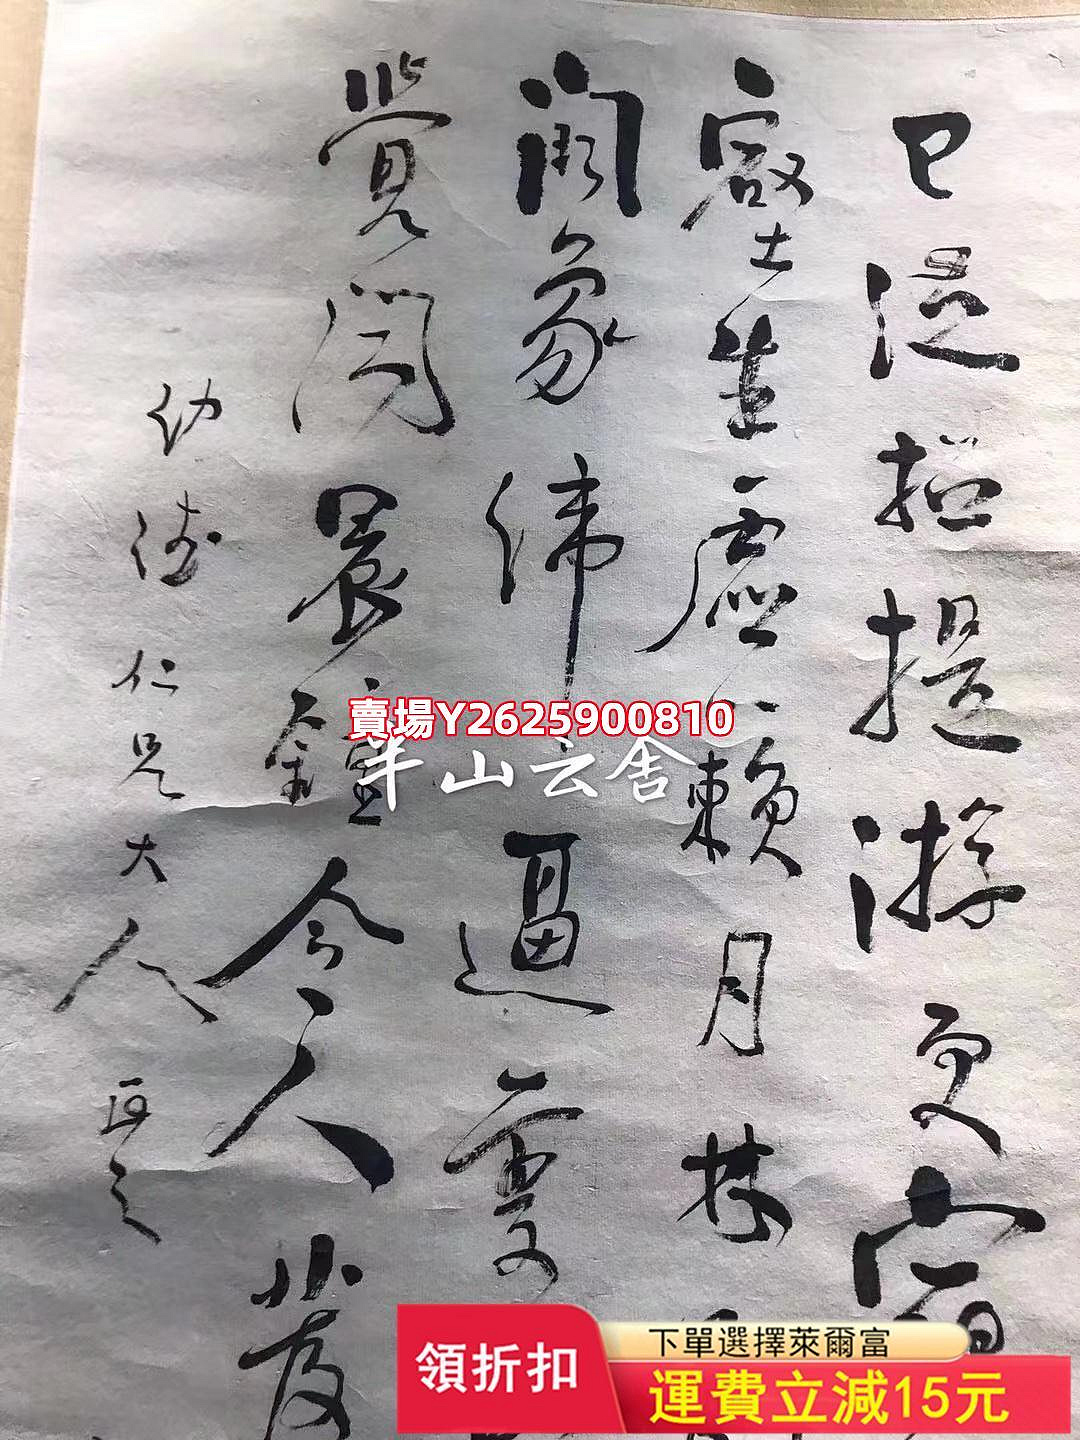 已從招提游更宿
壑生虛籟月林
闕象緯逼雲
覺聞晨鐘令人發
幼德仁兄大人正之
賣場Y2625900810
半山云舍
領折扣
下單選擇萊爾富
運費立減15元